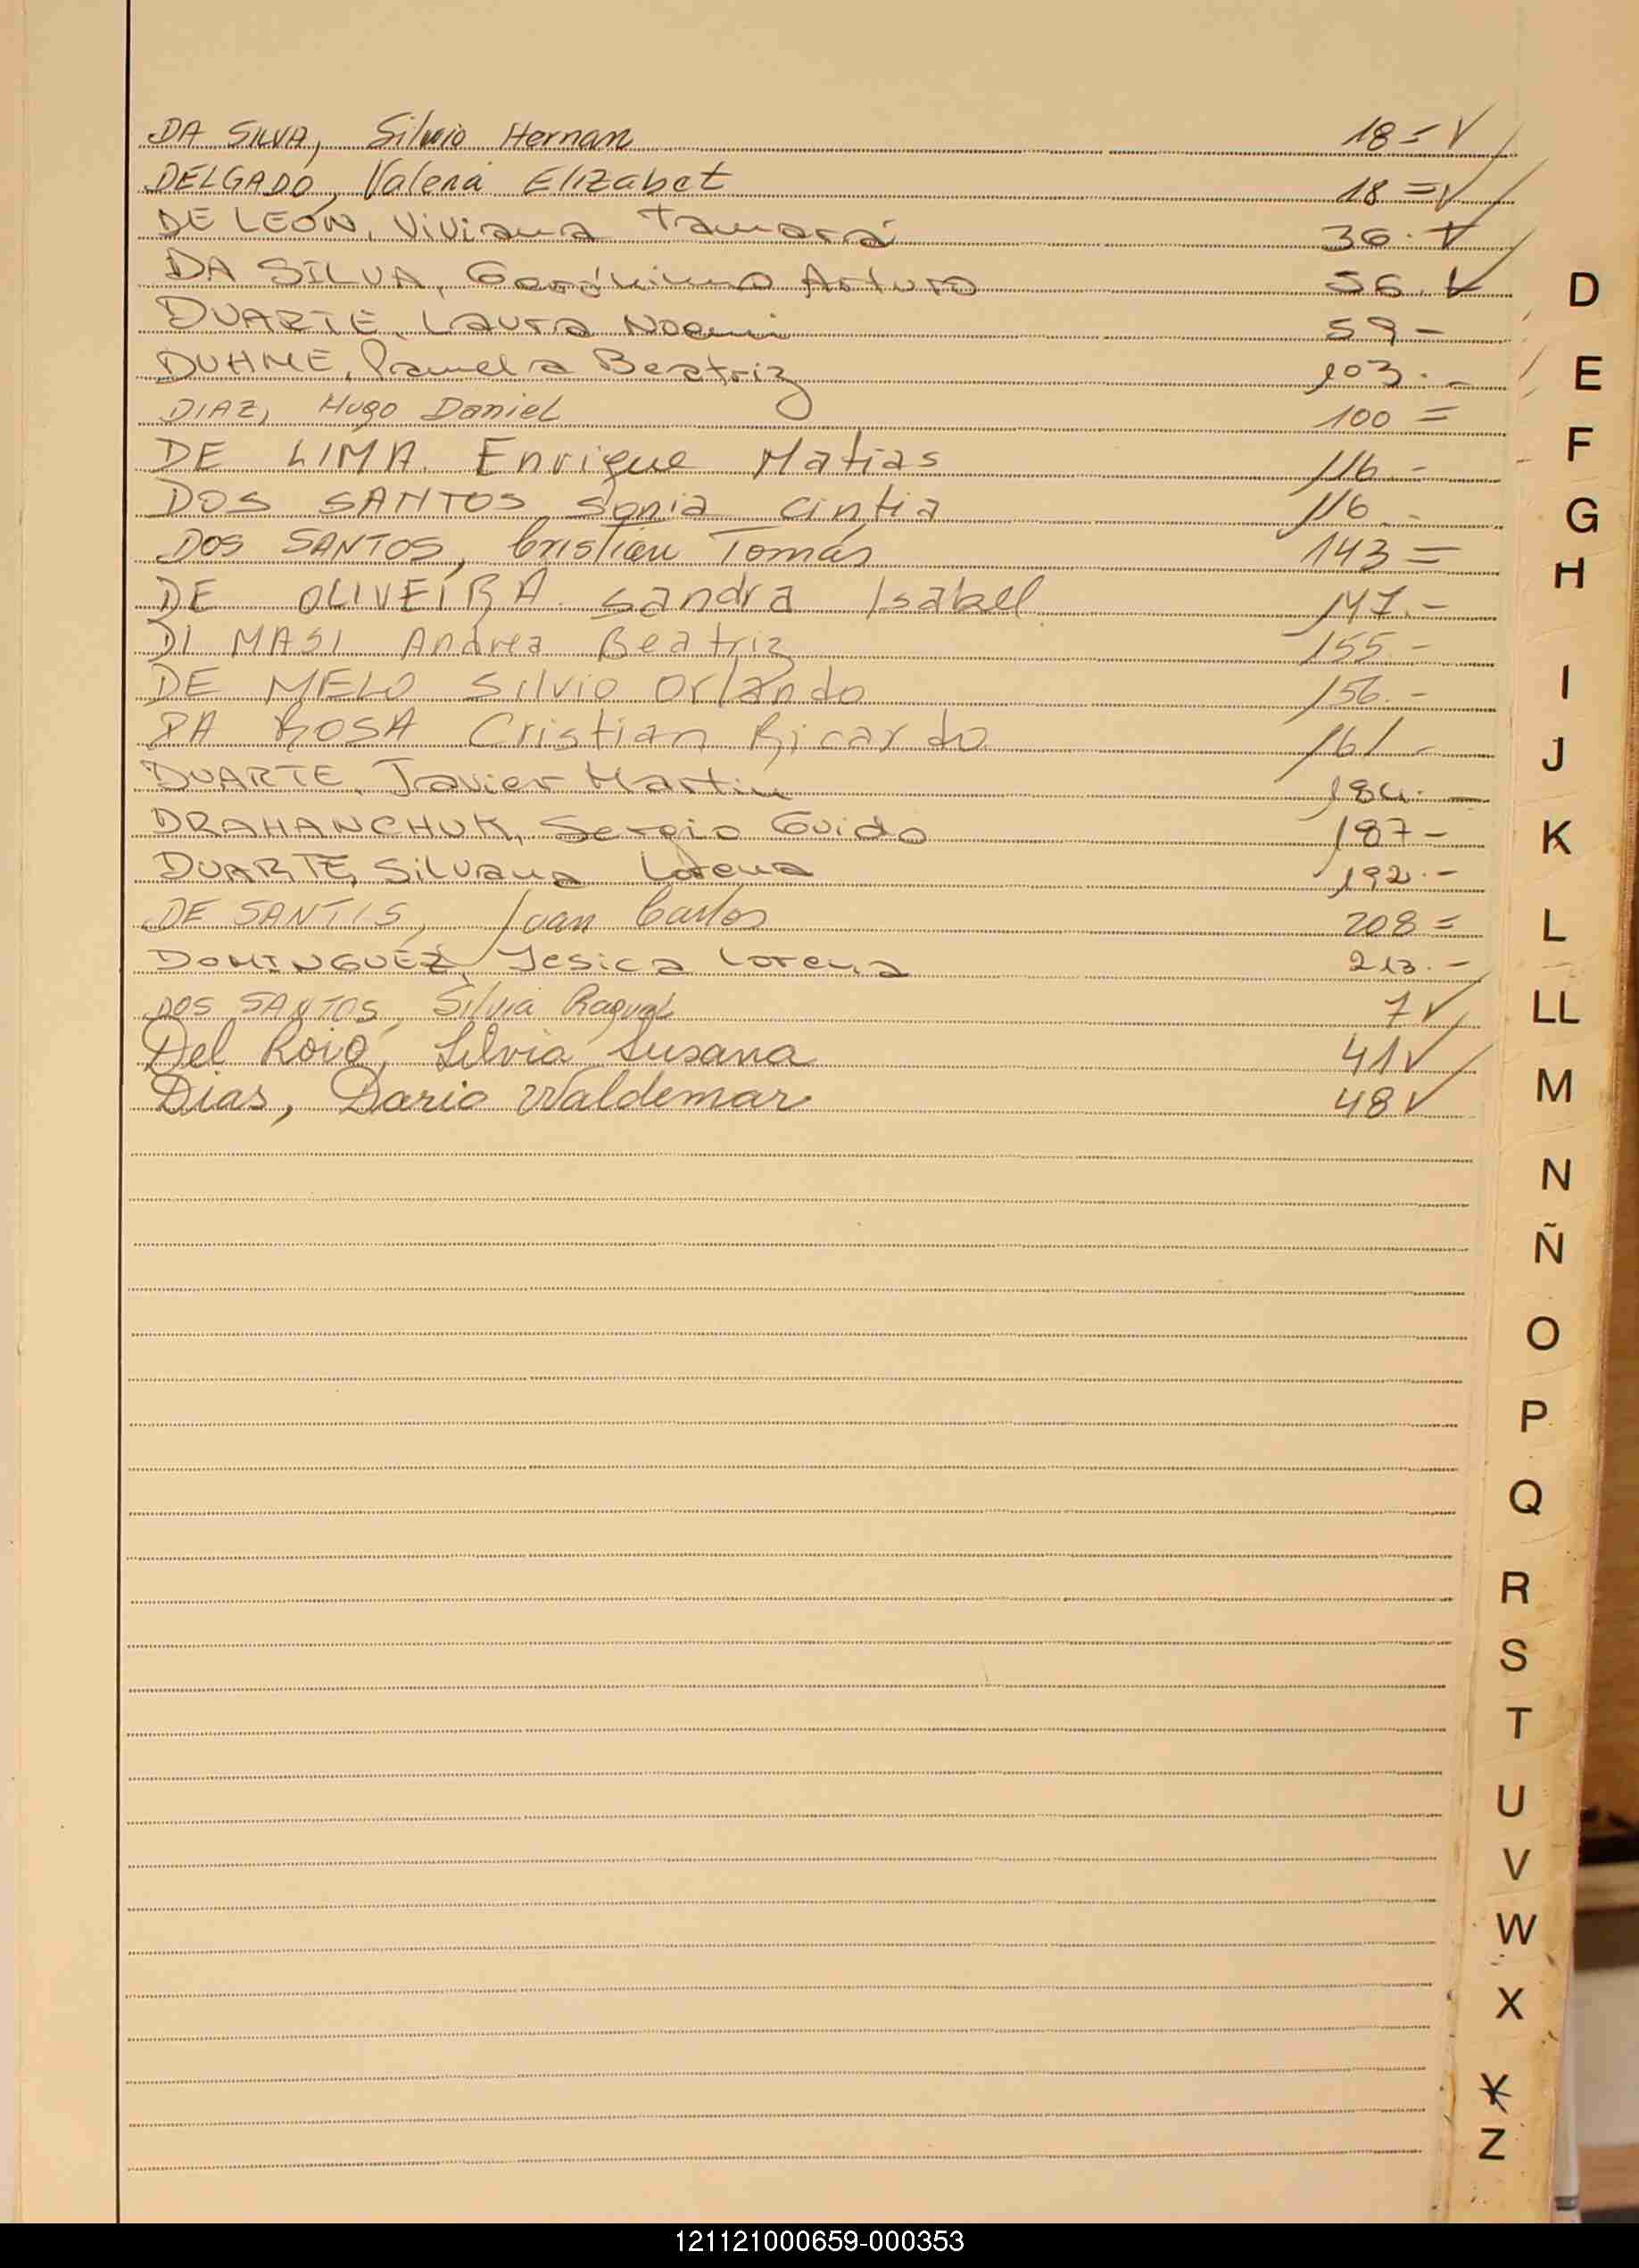 DA SILVA, Silvio Hernan 18 = V
DELGADO, Valeria Elizabet 18 = V
DE LEÓN, Viviana Tamara 36.- V
DA SILVA, Gerónimo Arturo 56.- V
DUARTE, Laura Noemi 59 -
DUHME, Pamela Beatriz 103.-
DIAZ, Hugo Daniel 100 =
DE LIMA. Enrique Matias 116.-
DOS SANTOS Sonia Cintia 116.-
DOS SANTOS, Cristian Tomás 143 =
DE OLIVEIRA. Sandra Isabel 147.-
DI MASI Andrea Beatriz 155 -
DE MELO Silvio Orlando 156.-
DA ROSA Cristian Ricardo 161 -
DUARTE, Javier Martin 184.-
DRAHANCHUK, Sergio Guido 187 -
DUARTE, Silvana Lorena 192.-
DE SANTIS, Juan Carlos 208 =
DOMINGUEZ, Yesica Lorena 213.-
DOS SANTOS, Silvia Raquel 7 V
Del Roio, Silvia Susana 41 V
Dias, Dario Waldemar 48 V
D
E
F
G
H
I
J
K
L
LL
M
N
Ñ
O
P
Q
R
S
T
U
V
W
X
Y
Z
121121000659-000353